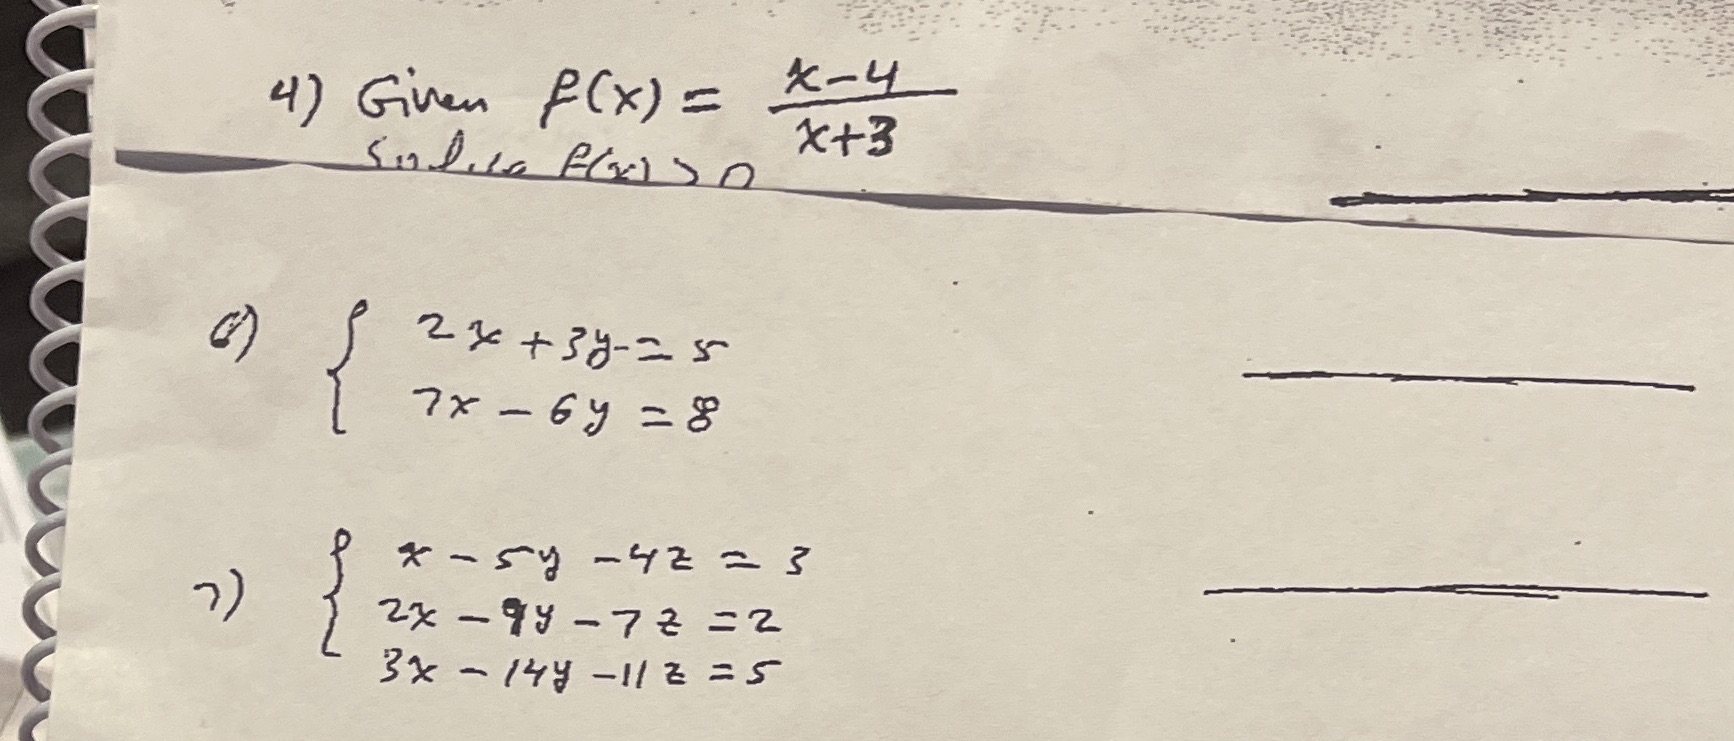 4) Given f(x) = x-4 / x+3
Solve f(x) > 0
6) { 2x + 3y = 5
7x - 6y = 8
7) { x - 5y - 4z = 3
2x - 9y - 7z = 2
3x - 14y - 11z = 5